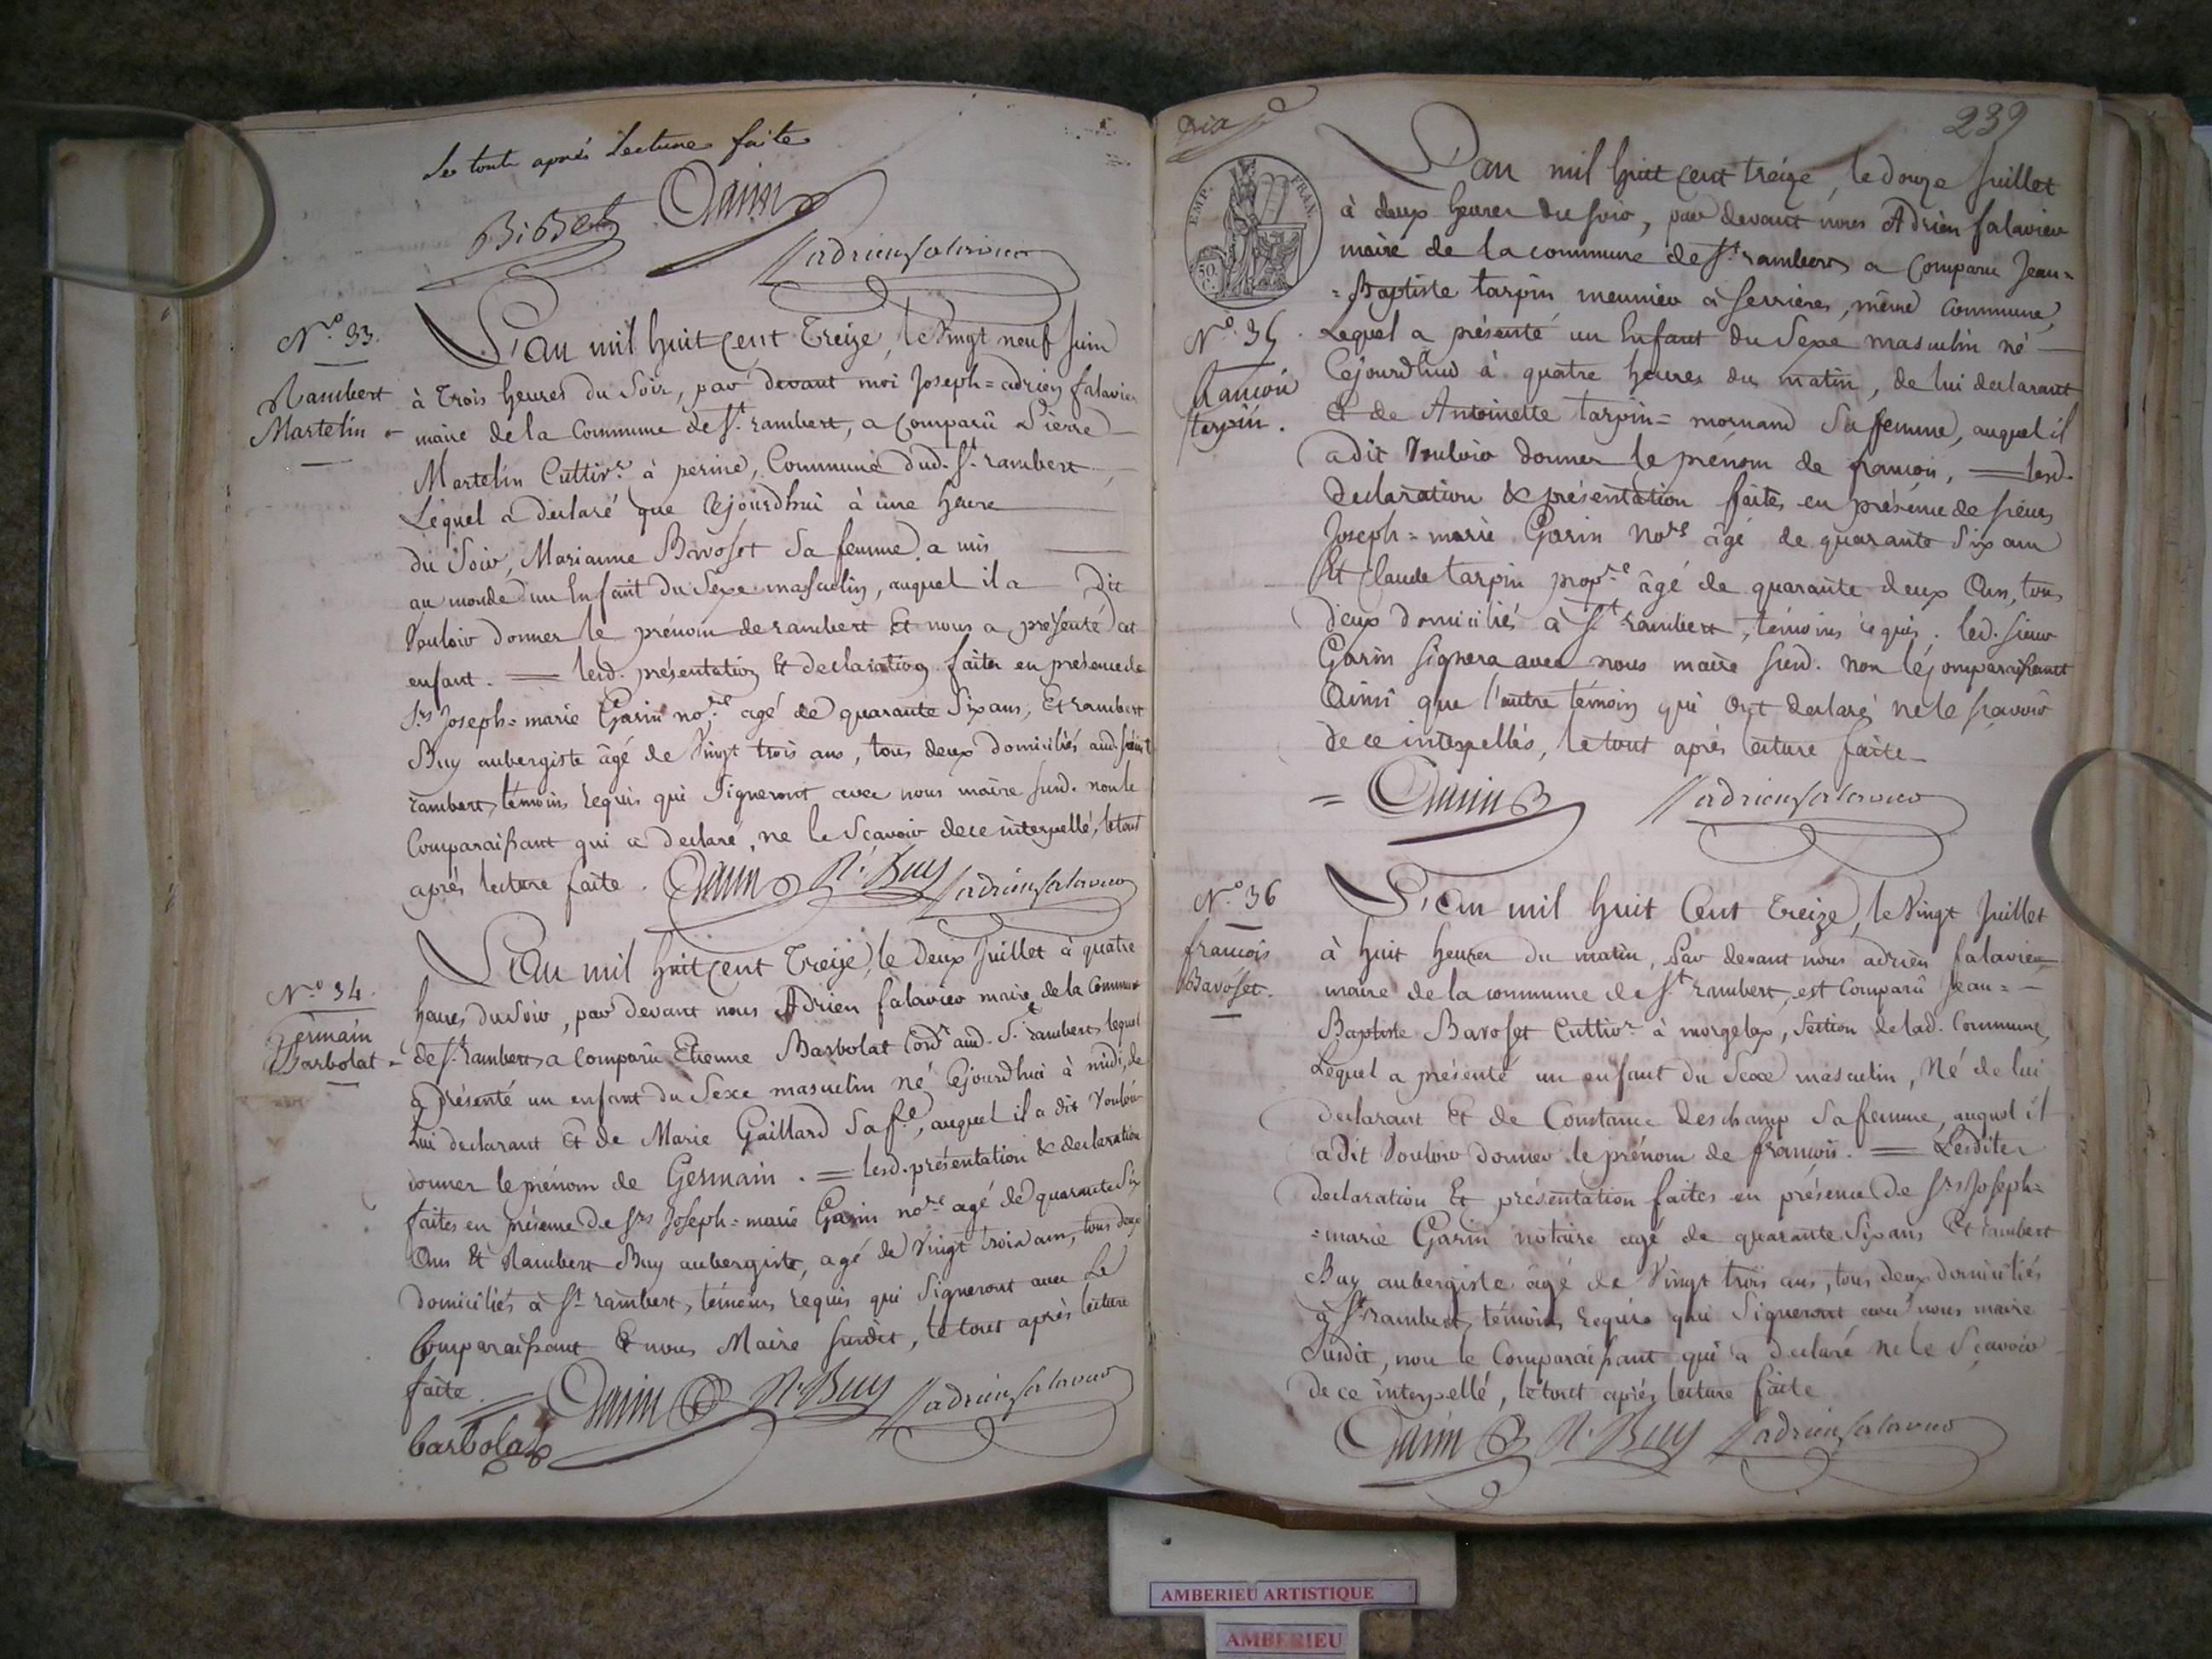 Le tout après Lecture faite
Bibet Garin
adrien falavier
N.o 33.
Rambert
Martelin
L'an mil huit cent treize, le vingt neuf juin
à trois heures du soir, par devant moi Joseph=adrien falavier
maire de la Commune de St. rambert, a comparû Pierre
Martelin Cultivr. à perine, Commune dud. St. rambert
Lequel a declaré que cejourdhui à une heure
du soir, Marianne Bavoset sa femme a mis
au monde un Enfant du Sexe masculin, auquel il a dit
Vouloir donner le prénom de rambert Et nous a présenté cet
enfant. = lesd. présentation Et declaration faites en présence de
Srs Joseph=marie Garin nore. agé de quarante Six ans, Et rambert
Buy aubergiste âgé de Vingt trois ans, tous deux domiciliés aud. saint
rambert, témoins requis qui Signeront avec nous maire susd. non le
Comparaissant qui a declaré, ne le Sçavoir de ce interpellé, le tout
après lecture faite. Garin R. Buy adrien falavier
N.o 34.
Germain
Barbolat
L'an mil huit cent treize, le deux Juillet à quatre
heures du soir, par devant nous Adrien falavier maire de la Commune
de St. rambert, a comparû Etienne Barbolat Cordr. aud. St. rambert, lequel
a présenté un enfant du Sexe masculin né Cejourdhui à midi, de
Lui declarant Et de Marie Gaillard Sa fe., auquel il a dit Vouloir
donner le prénom de Germain. = lesd. présentation & declaration
faites en présence de Srs Joseph=marie Garin nore. agé de quarante Six
Ans Et Rambert Buy aubergiste, agé de Vingt trois ans, tous deux
domiciliés à St. rambert, témoins requis qui Signeront avec Le
Comparaissant & nous Maire susdit, le tout après lecture
faite. Garin R. Buy adrien falavier
barbolat
239
EMP. FRAN.
50. C.
L'an mil huit cent treize, le douze juillet
à deux heures du soir, par devant nous Adrien falavier
maire de la commune de St. rambert, a comparu Jean=
=Baptiste tarpin meunier à serrieres, même commune,
N.o 35
françois
tarpin.
Lequel a présenté un Enfant du Sexe masculin né
Cejourdhui à quatre heures du matin, de lui declarant
Et de Antoinette tarpin=mornand Sa femme, auquel il
a dit Vouloir donner le prénom de françois. = lesd.
declaration & présentation faites en présence de sieurs
Joseph=marie Garin Nore âgé de quarante Six ans
Et Claude tarpin propre. âgé de quarante deux Ans, tous
deux domiciliés à St rambert, témoins requis. led. sieur
Garin signera avec nous maire susd. non le comparaissant
Ainsi que l'autre témoin qui ont declaré ne le sçavoir
de ce interpellés, le tout après lecture faite
Garin adrien falavier
N.o 36
françois
Bavoset.
L'an mil huit Cent treize, le Vingt Juillet
à huit heures du matin, Par devant nous adrien falavier
maire de la commune de St. rambert, est Comparû Jean=
Baptiste Bavoset Cultivr. à morgelas, Section de lad. Commune,
Lequel a présenté un enfant du Sexe masculin, Né de lui
declarant Et de Constance deschamp Sa femme, auquel il
a dit Vouloir donner le prénom de françois. = Lesdites
declaration Et présentation faites en présence de Srs Joseph=
=marie Garin notaire agé de quarante Six ans Et rambert
Buy aubergiste âgé de Vingt trois ans, tous deux domiciliés
à St. rambert, témoins requis qui Signeront avec nous maire
Susdit, non le Comparaissant qui a declaré ne le Sçavoir
de ce interpellé, le tout après lecture faite
Garin R. Buy adrien falavier
AMBERIEU ARTISTIQUE
AMBERIEU